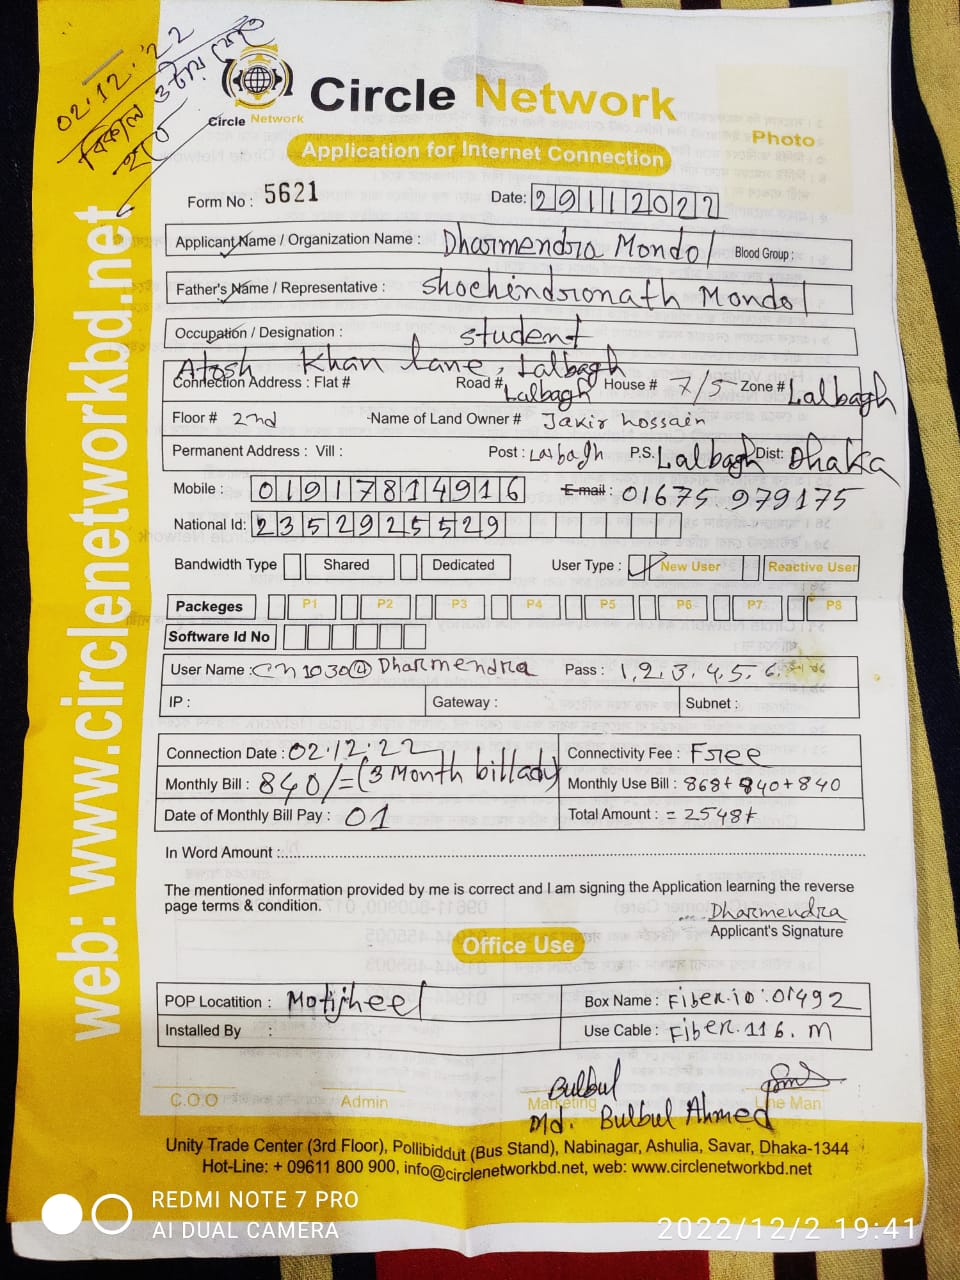 02.12.22
বিকাল ৩ টায়
Circle Network
Circle Network
Photo
Application for Internet Connection
Form No : 5621 Date: 29112022
Applicant Name / Organization Name : Dharmendra Mondol Blood Group :
Father's Name / Representative : Shochindronath Mondol
Occupation / Designation : student
Atosh Khan lane, Lalbagh
Connection Address : Flat # Road # Lalbagh House # 7/5 Zone # Lalbagh
Floor # 2nd Name of Land Owner # Jakir hossain
Permanent Address : Vill : Post : Lalbagh P.S. Lalbagh Dist: Dhaka
Mobile : 01917814916 E-mail : 01675 979175
National Id: 2352925529
Bandwidth Type Shared Dedicated User Type : New User Reactive User
Packeges P1 P2 P3 P4 P5 P6 P7 P8
Software Id No
User Name : Cn1030@Dharmendra Pass : 1,2,3,4,5,6
IP : Gateway : Subnet :
Connection Date : 02.12.22 Connectivity Fee : Free
Monthly Bill : 840/= (3 Month bill ady) Monthly Use Bill : 868+840+840
Date of Monthly Bill Pay : 01 Total Amount : = 2548
In Word Amount :
The mentioned information provided by me is correct and I am signing the Application learning the reverse
page terms & condition.
Dharmendra
Applicant's Signature
Office Use
POP Locatition : Motijheel Box Name : Fiber.iD:01492
Installed By : Use Cable : Fiber.116.m
Bulbul
C.O.O Admin Marketing Line Man
Md. Bulbul Ahmed
Unity Trade Center (3rd Floor), Pollibiddut (Bus Stand), Nabinagar, Ashulia, Savar, Dhaka-1344
Hot-Line: + 09611 800 900, info@circlenetworkbd.net, web: www.circlenetworkbd.net
web: www.circlenetworkbd.net
REDMI NOTE 7 PRO
AI DUAL CAMERA
2022/12/2 19:41